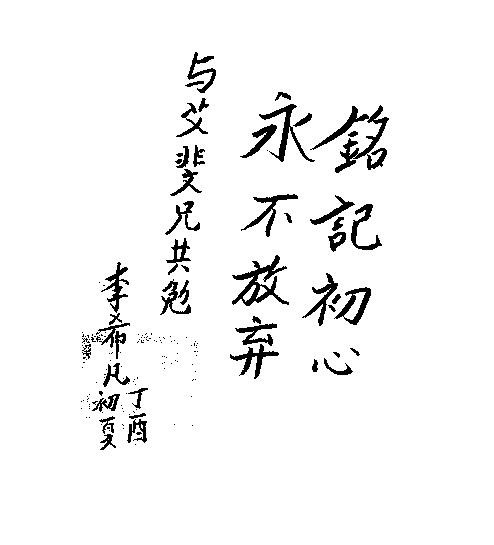 銘記初心
永不放弃
与艾斐兄共勉
李希凡
丁酉
初夏